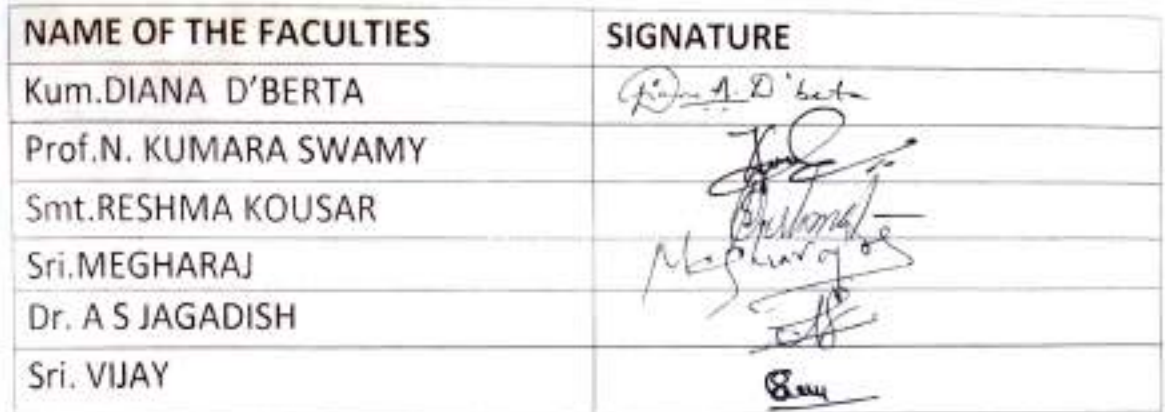 NAME OF THE FACULTIES SIGNATURE
Kum.DIANA D'BERTA Diana A. D'berta
Prof.N. KUMARA SWAMY
Smt.RESHMA KOUSAR
Sri.MEGHARAJ Megharaj
Dr. A S JAGADISH
Sri. VIJAY